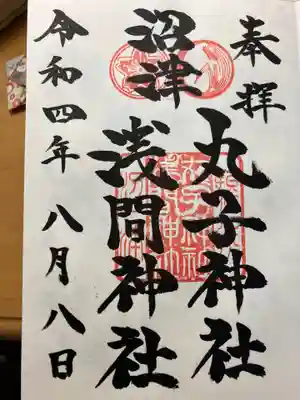 奉拝
丸子神社
沼津
浅間神社
令和四年 八月八日